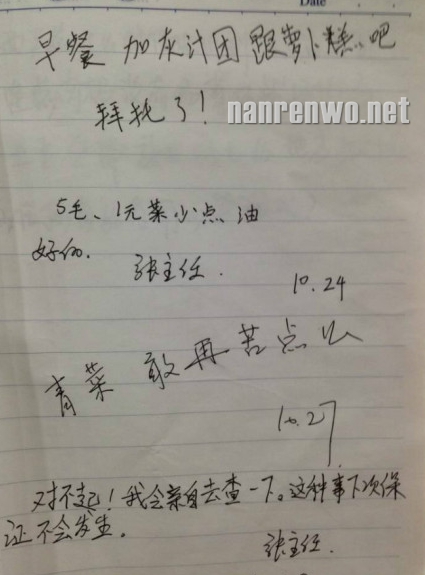 Date
早餐 加灰计团 跟萝卜糕吧
拜托了!
nanrenwo.net
5毛、1元菜少点油
好的.
张主任.
10.24
青菜 敢再苦点么
10.27
对不起!我会亲自去查一下。这种事下次保
证不会发生。
张主任.